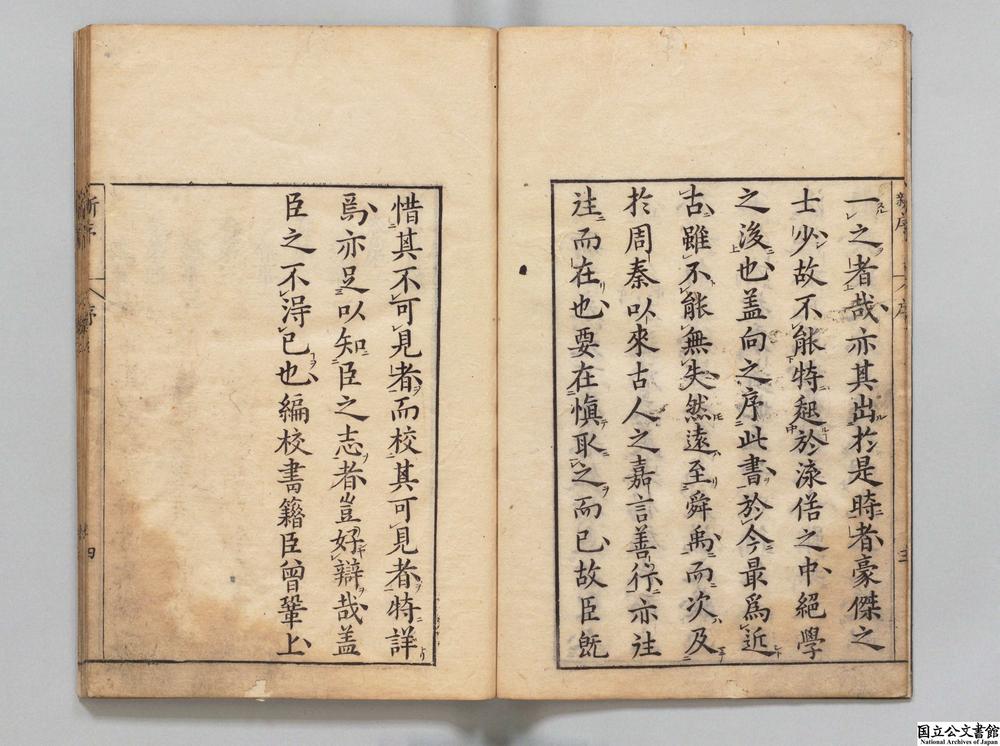 一之者哉亦其出於是時者豪傑之
士少故不能特起於流俗之中絕學
之後也盖向之序此書於今最爲近
古雖不能無失然遠至舜禹而次及
於周秦以來古人之嘉言善行亦往
徃而在也要在慎取之而已故臣既
惜其不可見者而校其可見者特詳
焉亦足以知臣之志者豈好辯哉盖
臣之不得已也編校書籍臣曾鞏上
新序
序
三
新序
序
四
国立公文書館
National Archives of Japan